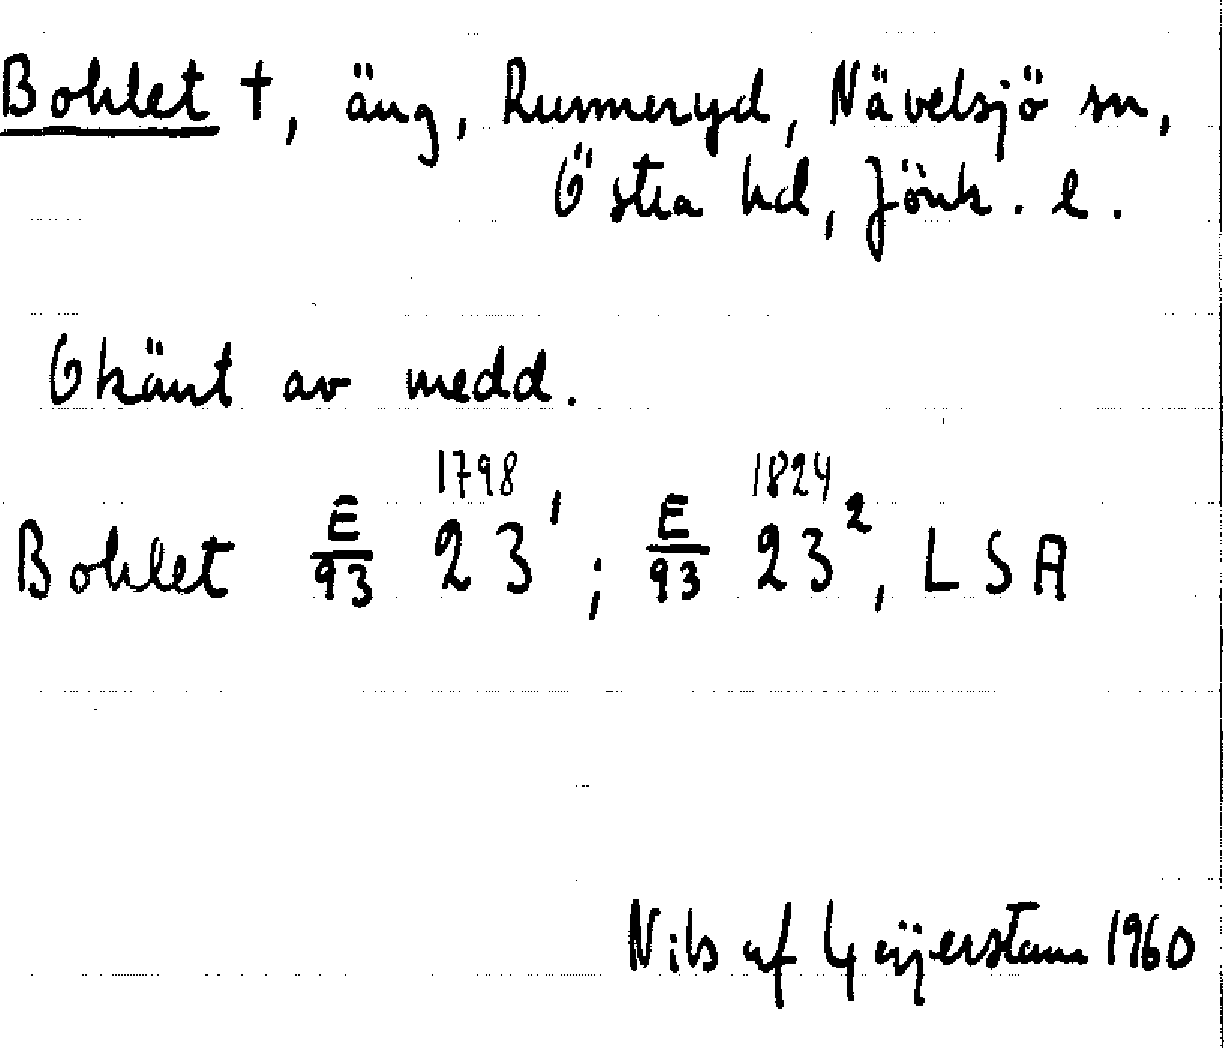 Bohlet †, äng, Rummeryd, Nävelsjö sn,
Östra hd, Jönk. l.
Okänt av medd.
Bohlet E/93 1798 23¹; E/93 1824 23², LSA
Nils af Geijerstam 1960